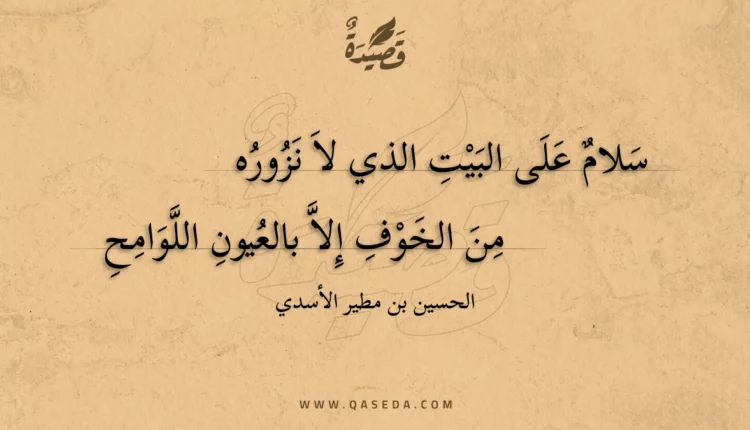 قَصِيْدَةٌ
سَلامٌ عَلَى البَيْتِ الذي لاَ نَزُورُه
مِنَ الخَوْفِ إِلاَّ بالعُيونِ اللَّوَامِحِ
الحسين بن مطير الأسدي
WWW.QASEDA.COM